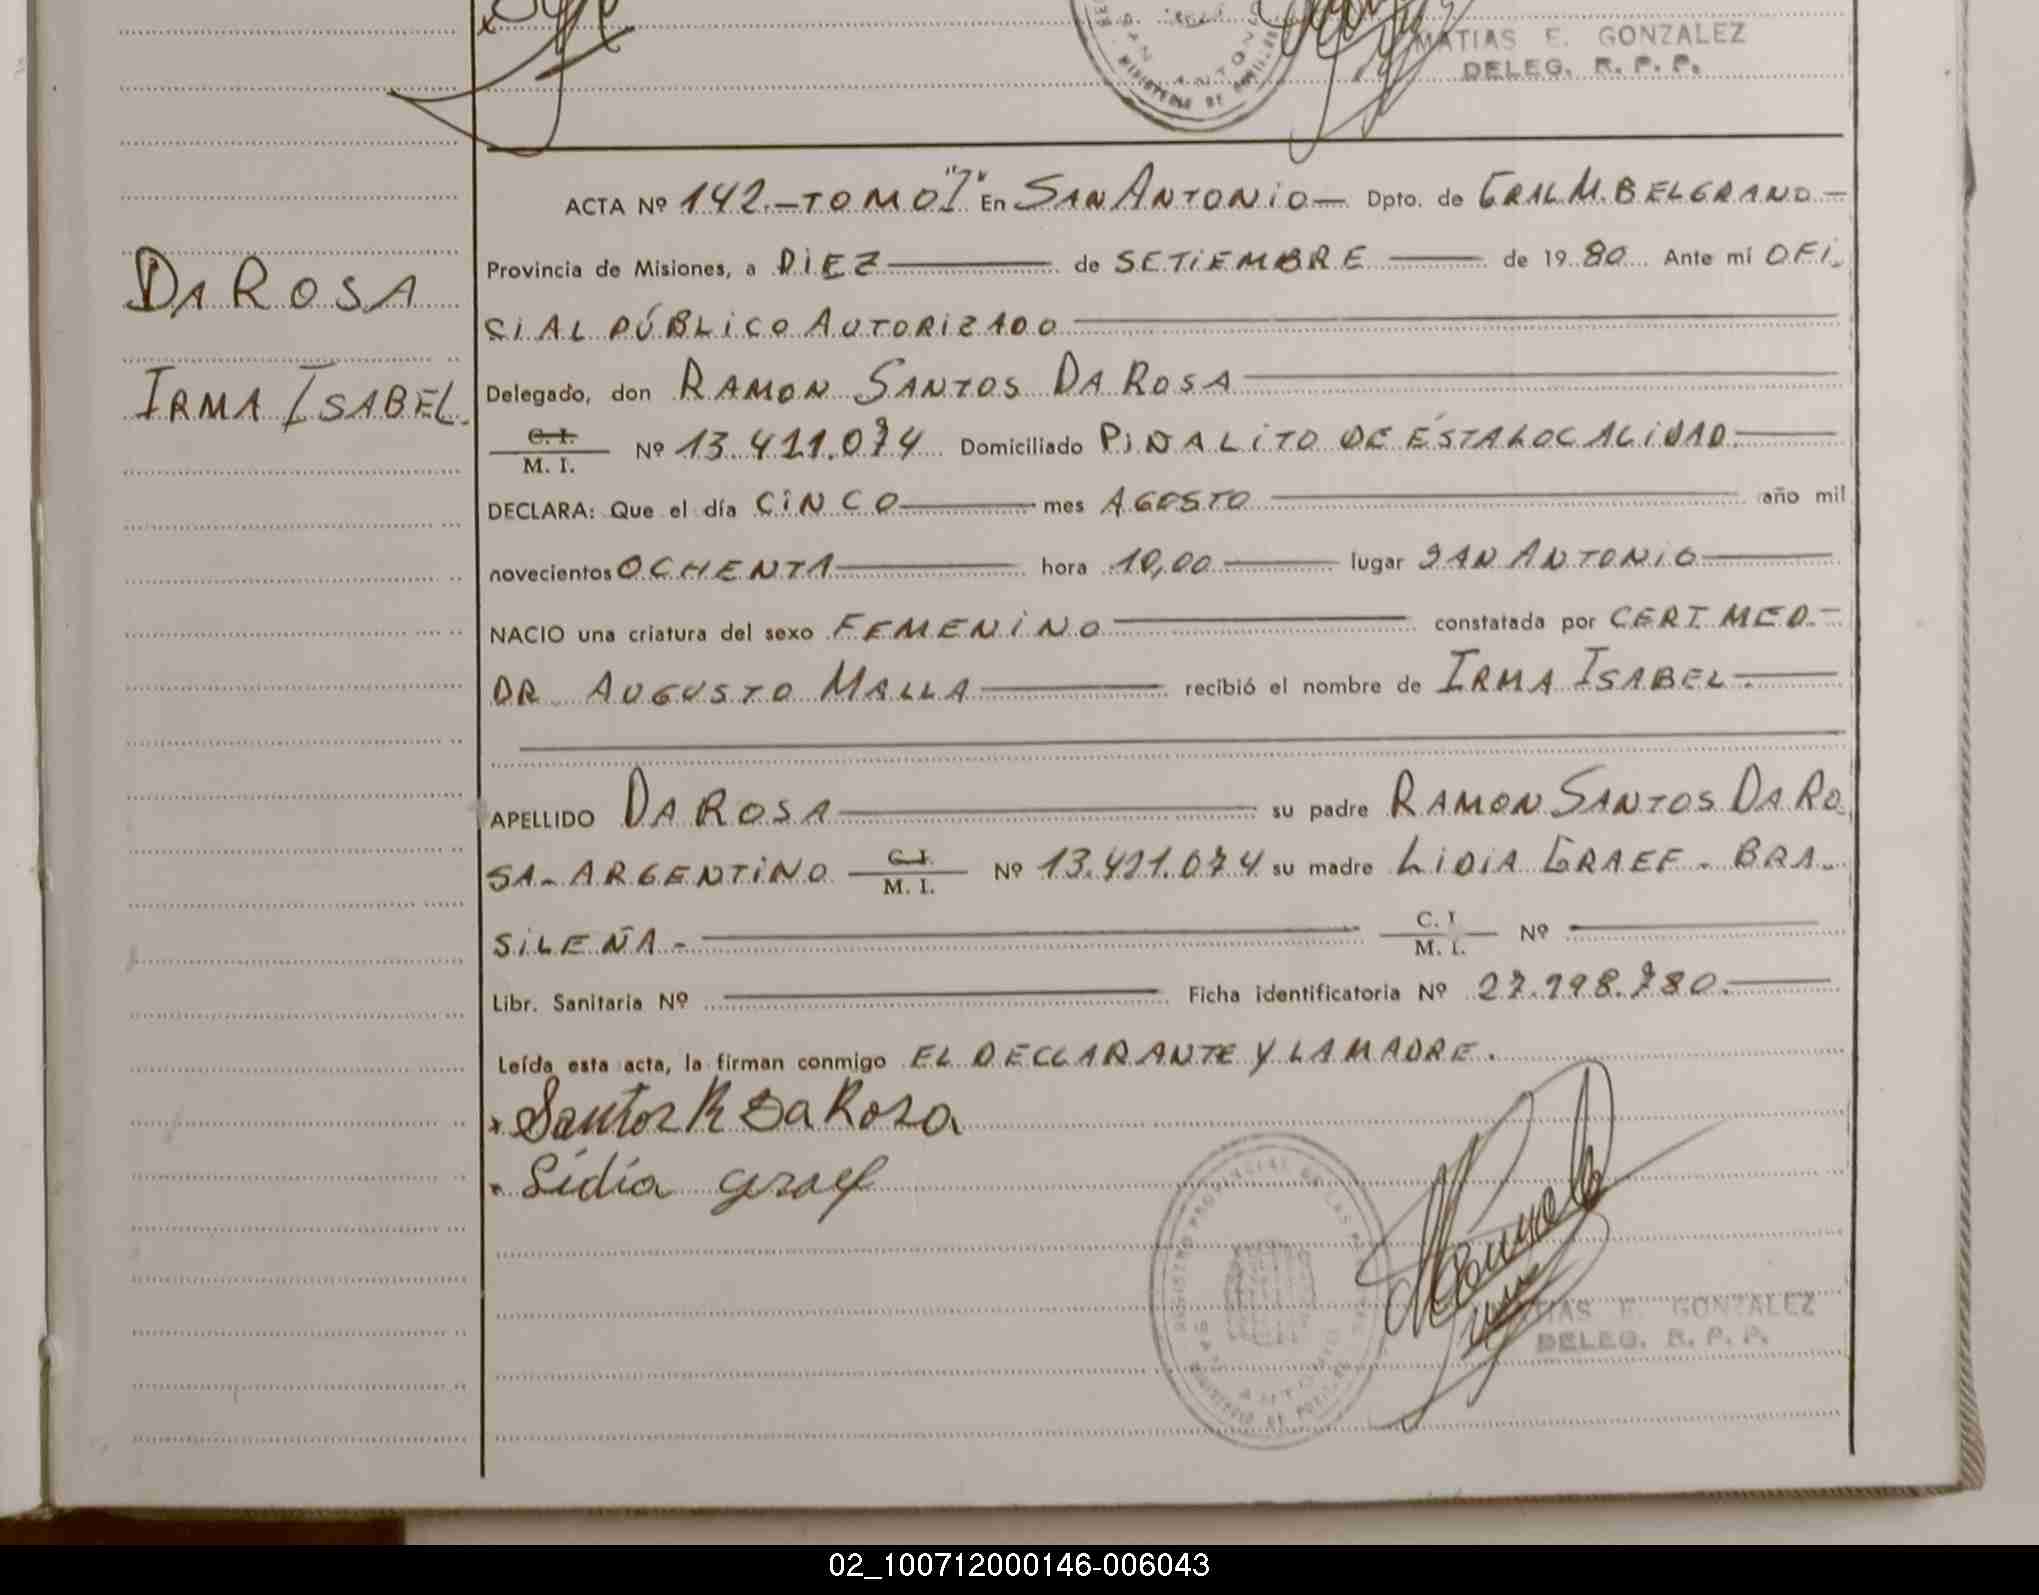 MATIAS E. GONZALEZ
DELEG. R. P. P.
ACTA Nº 142.- TOMO "I" En SAN ANTONIO- Dpto. de GRAL M. BELGRANO-
Provincia de Misiones, a DIEZ de SETIEMBRE de 1980 Ante mí OFI-
CIAL PÚBLICO AUTORIZADO
DA ROSA
IRMA ISABEL.
Delegado, don RAMON SANTOS DA ROSA
C. I.
M. I. Nº 13.421.074 Domiciliado PINALITO DE ESTA LOCALIDAD.
DECLARA: Que el día CINCO mes AGOSTO año mil
novecientos OCHENTA hora 10,00 lugar SAN ANTONIO
NACIO una criatura del sexo FEMENINO constatada por CERT MED.-
DR. AUGUSTO MALLA recibió el nombre de IRMA ISABEL-.
APELLIDO DA ROSA su padre RAMON SANTOS DA RO
SA- ARGENTINO C. I. / M. I. Nº 13.421.074 su madre LIDIA GRAEF - BRA-
SILEÑA - C. I. / M. I. Nº
Libr. Sanitaria Nº Ficha identificatoria Nº 27.998.780.
Leída esta acta, la firman conmigo EL DECLARANTE Y LA MADRE.
x Santos R Da Rosa
Lidia Graef
REGISTRO PROVINCIAL DE LAS
SAN ANTONIO
MINISTERIO DE
GONZALEZ
DELEG. R. P. P.
02_100712000146-006043